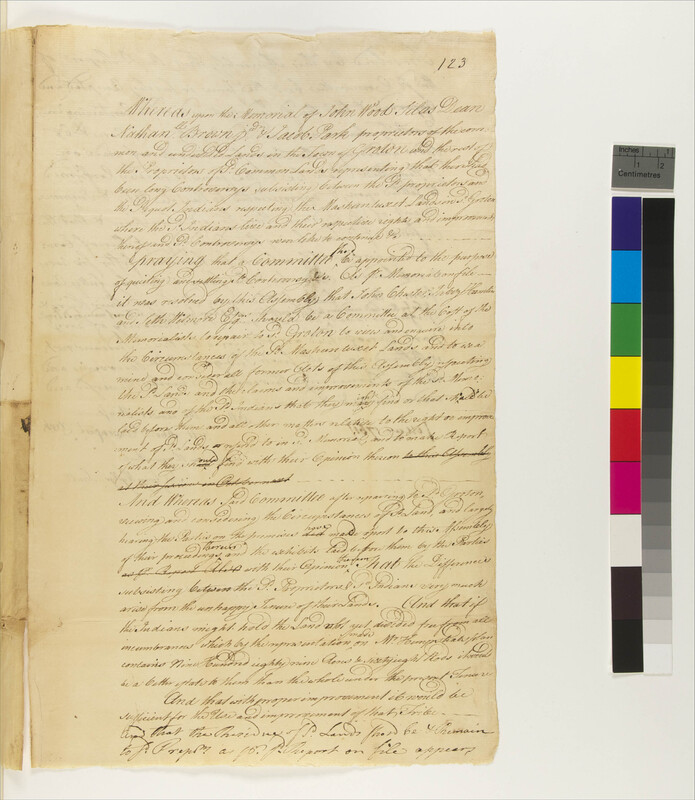 123
Whereas upon the Memorial of John Wood Silas Dean
Nathan Brown & Jacob Park proprietors of the com
mon and undivided Lands in the Town of Groton and the rest of
the Proprietors of Sd. Common Lands representing that there has
been long Controversys subsisting between the Sd. proprietors and
the Pequot Indians respecting the Mashuntuxet Lands in Sd. Groton
where the Sd. Indians live and their respective rights and improvem
thereof and Sd. Controversys were like to
praying that a Committee may be appointed to the purpose
of quieting and settling Sd. Controversys &c. As pr. Memorial on file
it was resolved by this Assembly that John Chester
and Seth Wetmore Esqrs. should be a Committee at the Cost of the
Memorialists to repair to Sd. Groton to view and enquire into
the Circumstances of the Sd. Mashuntuxet Lands and to
and consider all former Acts of this Assembly respecting
the Sd. Lands and the claims and improvements of the Sd. Memo-
rialists and of the Sd. Indians that they may find or that shall be
laid before them and all other matters relative to the right or improve
ment of Sd. Lands referred to in Sd. Memorial, and to make Report
of what they should find with their Opinion thereon to their Assembly
at their sessions in October next
And Whereas Said Committee after repairing to Sd. Groton,
viewing and considering the Circumstances of Sd. Land and largely
hearing the Parties on the premises have made report to this Assembly
of their proceedings therein and the exhibits laid before them by the Parties
with their Opinion thereon That the Difference
subsisting between the Sd. Proprietors & Sd. Indians very much
arises from the unhappy Tenure of their Lands. And that if
the Indians might hold the Land divided free from all
incumbrances which by the representation made on Mr. Plan
contains Nine hundred eighty nine Acres & sixty eight Rods it would
be a better estate to them than the whole under the present Tenure
And that with proper improvement it would be
sufficient for the Use and improvement of that Tribe
And that the Residue of Sd. Lands shod. be & remain
to Sd. Propts. Sd. Report on file appears